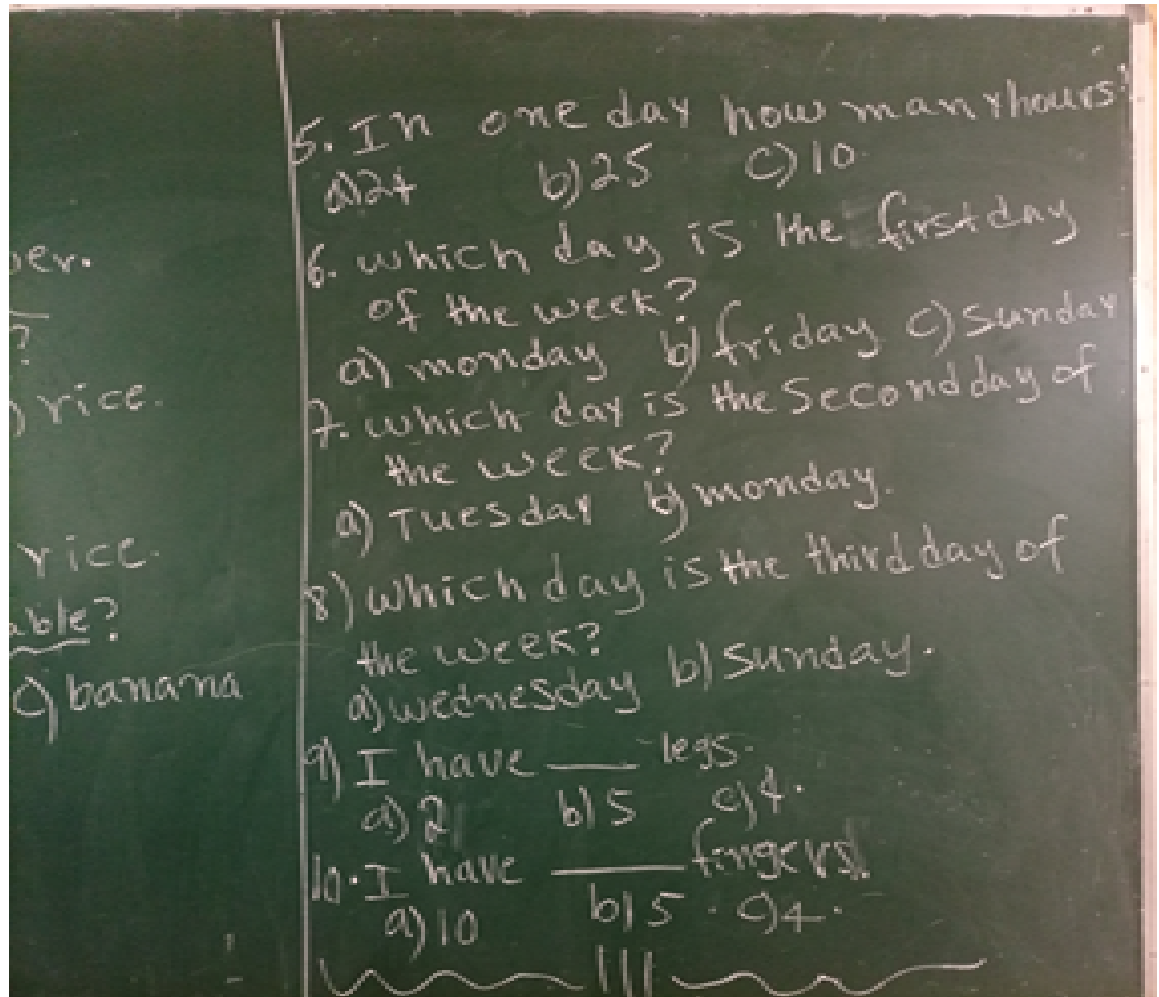 ver.
?
) rice.
rice.
able?
c) banana
5. In one day how many hours?
a) 24 b) 25 c) 10.
6. which day is the first day
of the week?
a) monday b) friday c) Sunday
7. which day is the Second day of
the week?
a) Tuesday b) monday.
8) which day is the third day of
the week?
a) wednesday b) Sunday.
9) I have ___ legs.
a) 2 b) 5 c) 4.
10. I have ___ fingers.
a) 10 b) 5. c) 4.